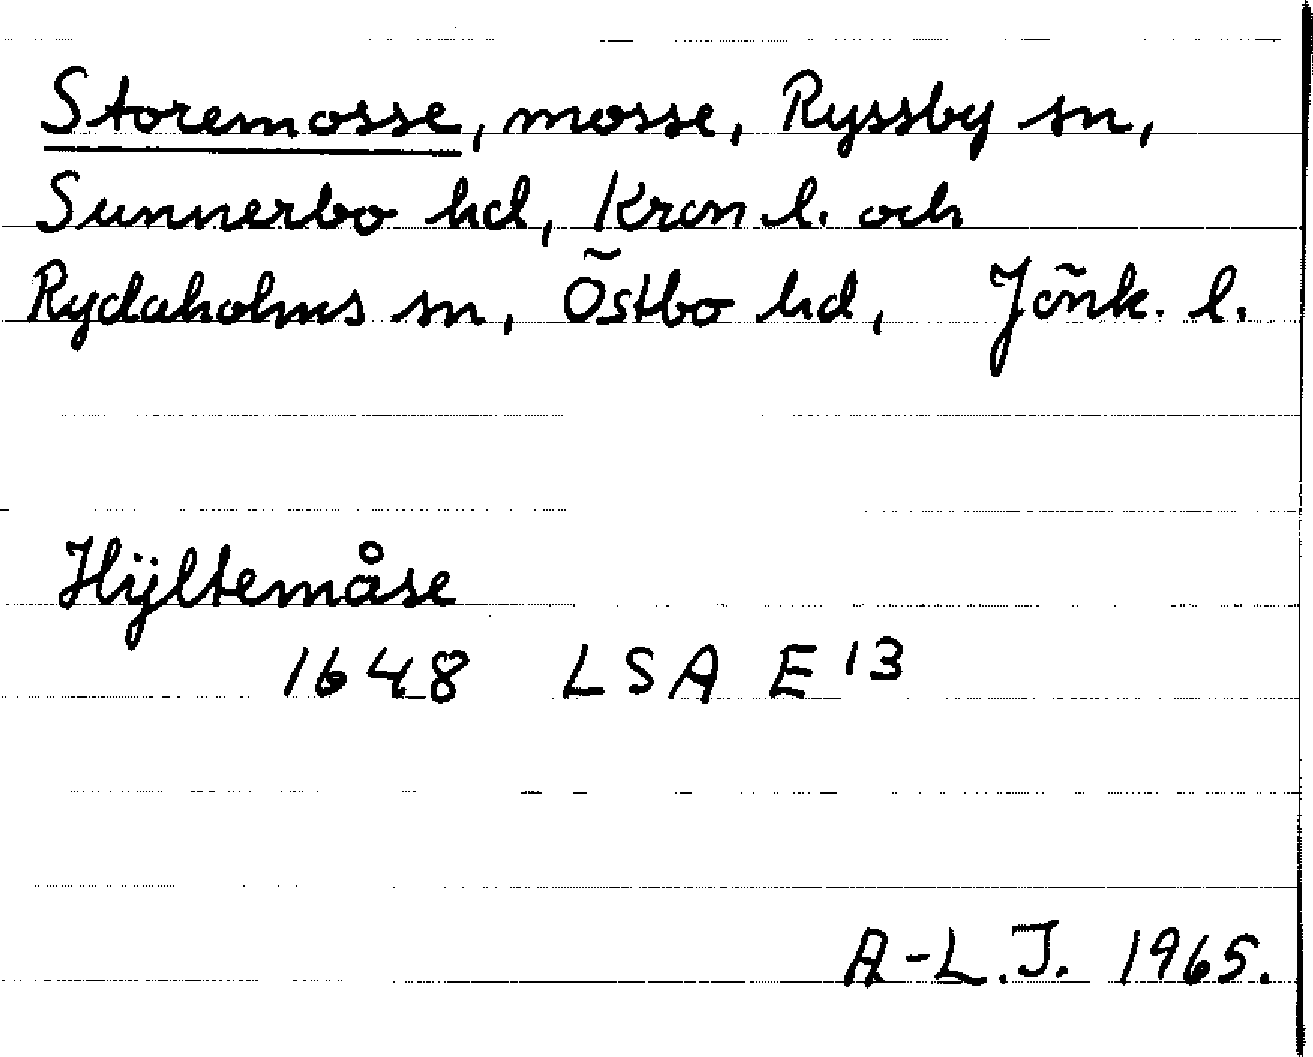 Storemosse, mosse, Ryssby sn,
Sunnerbo hd, Kron. l. och
Rydaholms sn, Östbo hd, Jönk. l.
Hÿltemåse
1648 LSA E 13
A-L. J. 1965.